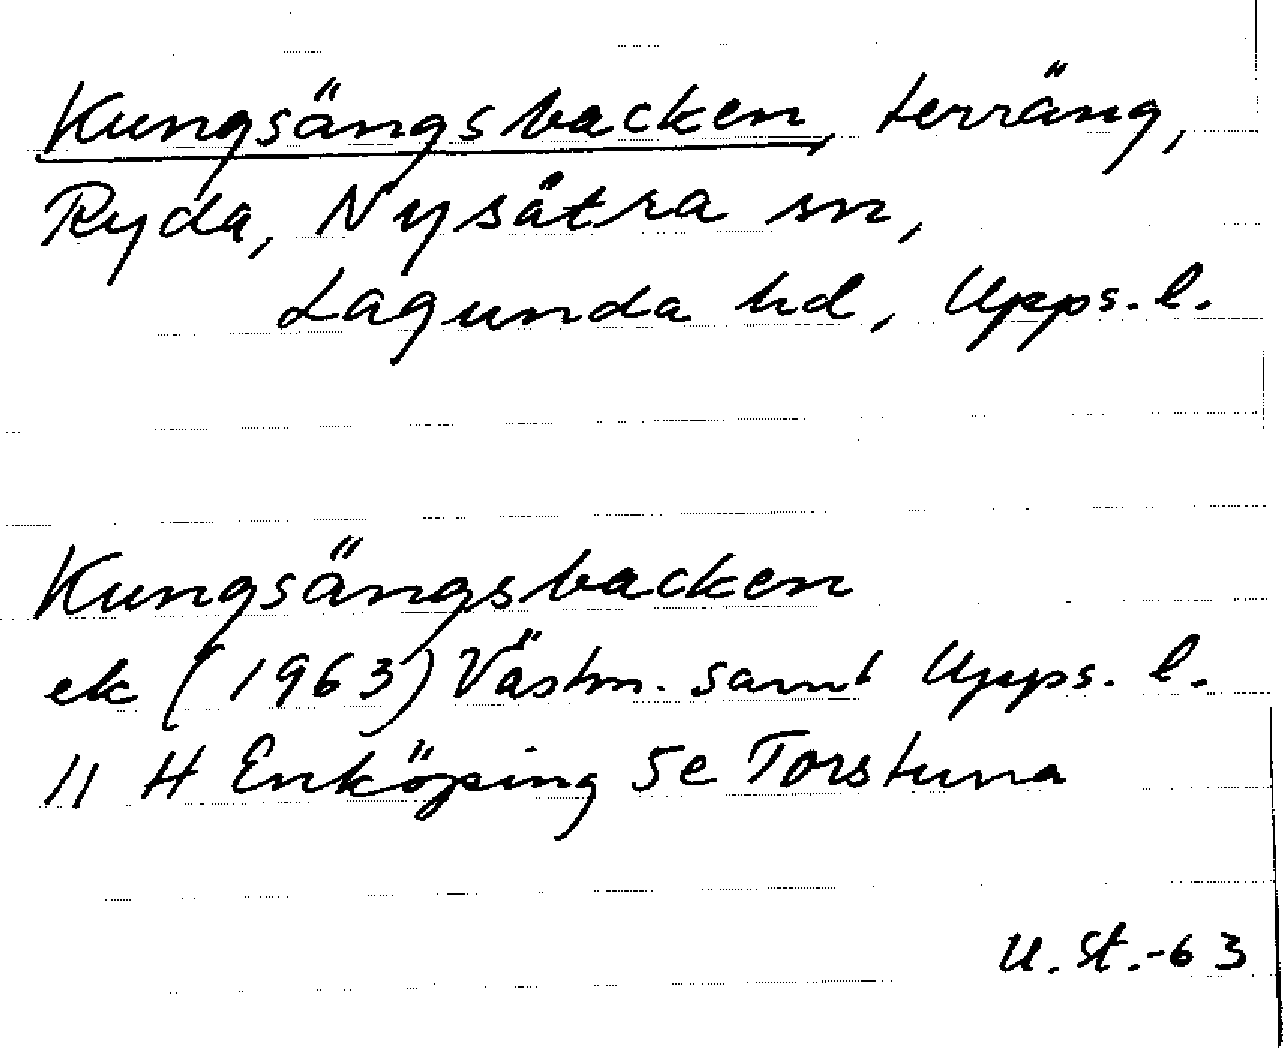 Kungsängsbacken, terräng,
Ryda, Nysätra sn,
Lagunda hd, Upps. l.
Kungsängsbacken
ek (1963) Västm. samt Upps. l.
11 H Enköping 5e Torstuna
U. St.-63